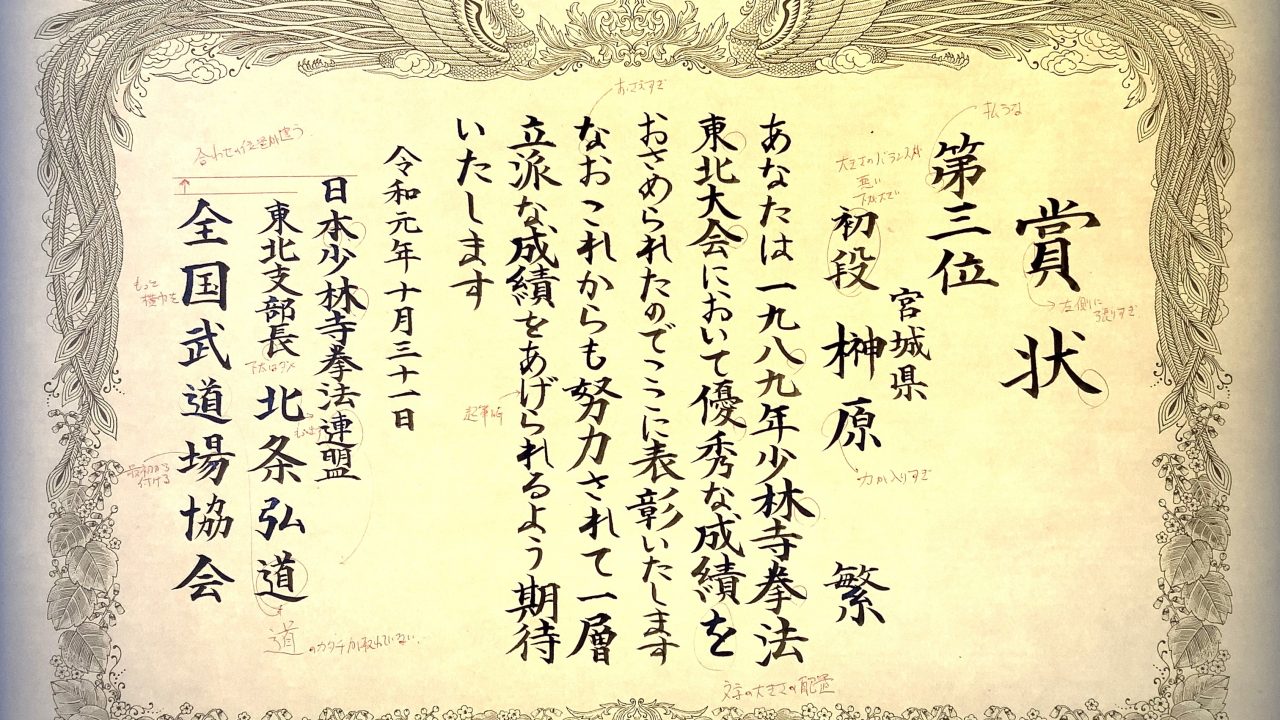 賞状
第三位
宮城県
初段 榊原 繁
あなたは一九八九年少林寺拳法
東北大会において優秀な成績を
おさめられたのでここに表彰いたします
なおこれからも努力されて一層
立派な成績をあげられるよう期待
いたします
令和元年十月三十一日
日本少林寺拳法連盟
東北支部長 北条弘道
全国武道場協会
払うな
左側に
張りすぎ
大きさのバランスが
悪い
力が入りすぎ
おさえすぎ
文字の大きさの配置
もっと
横力を
道のカタチが取れていない